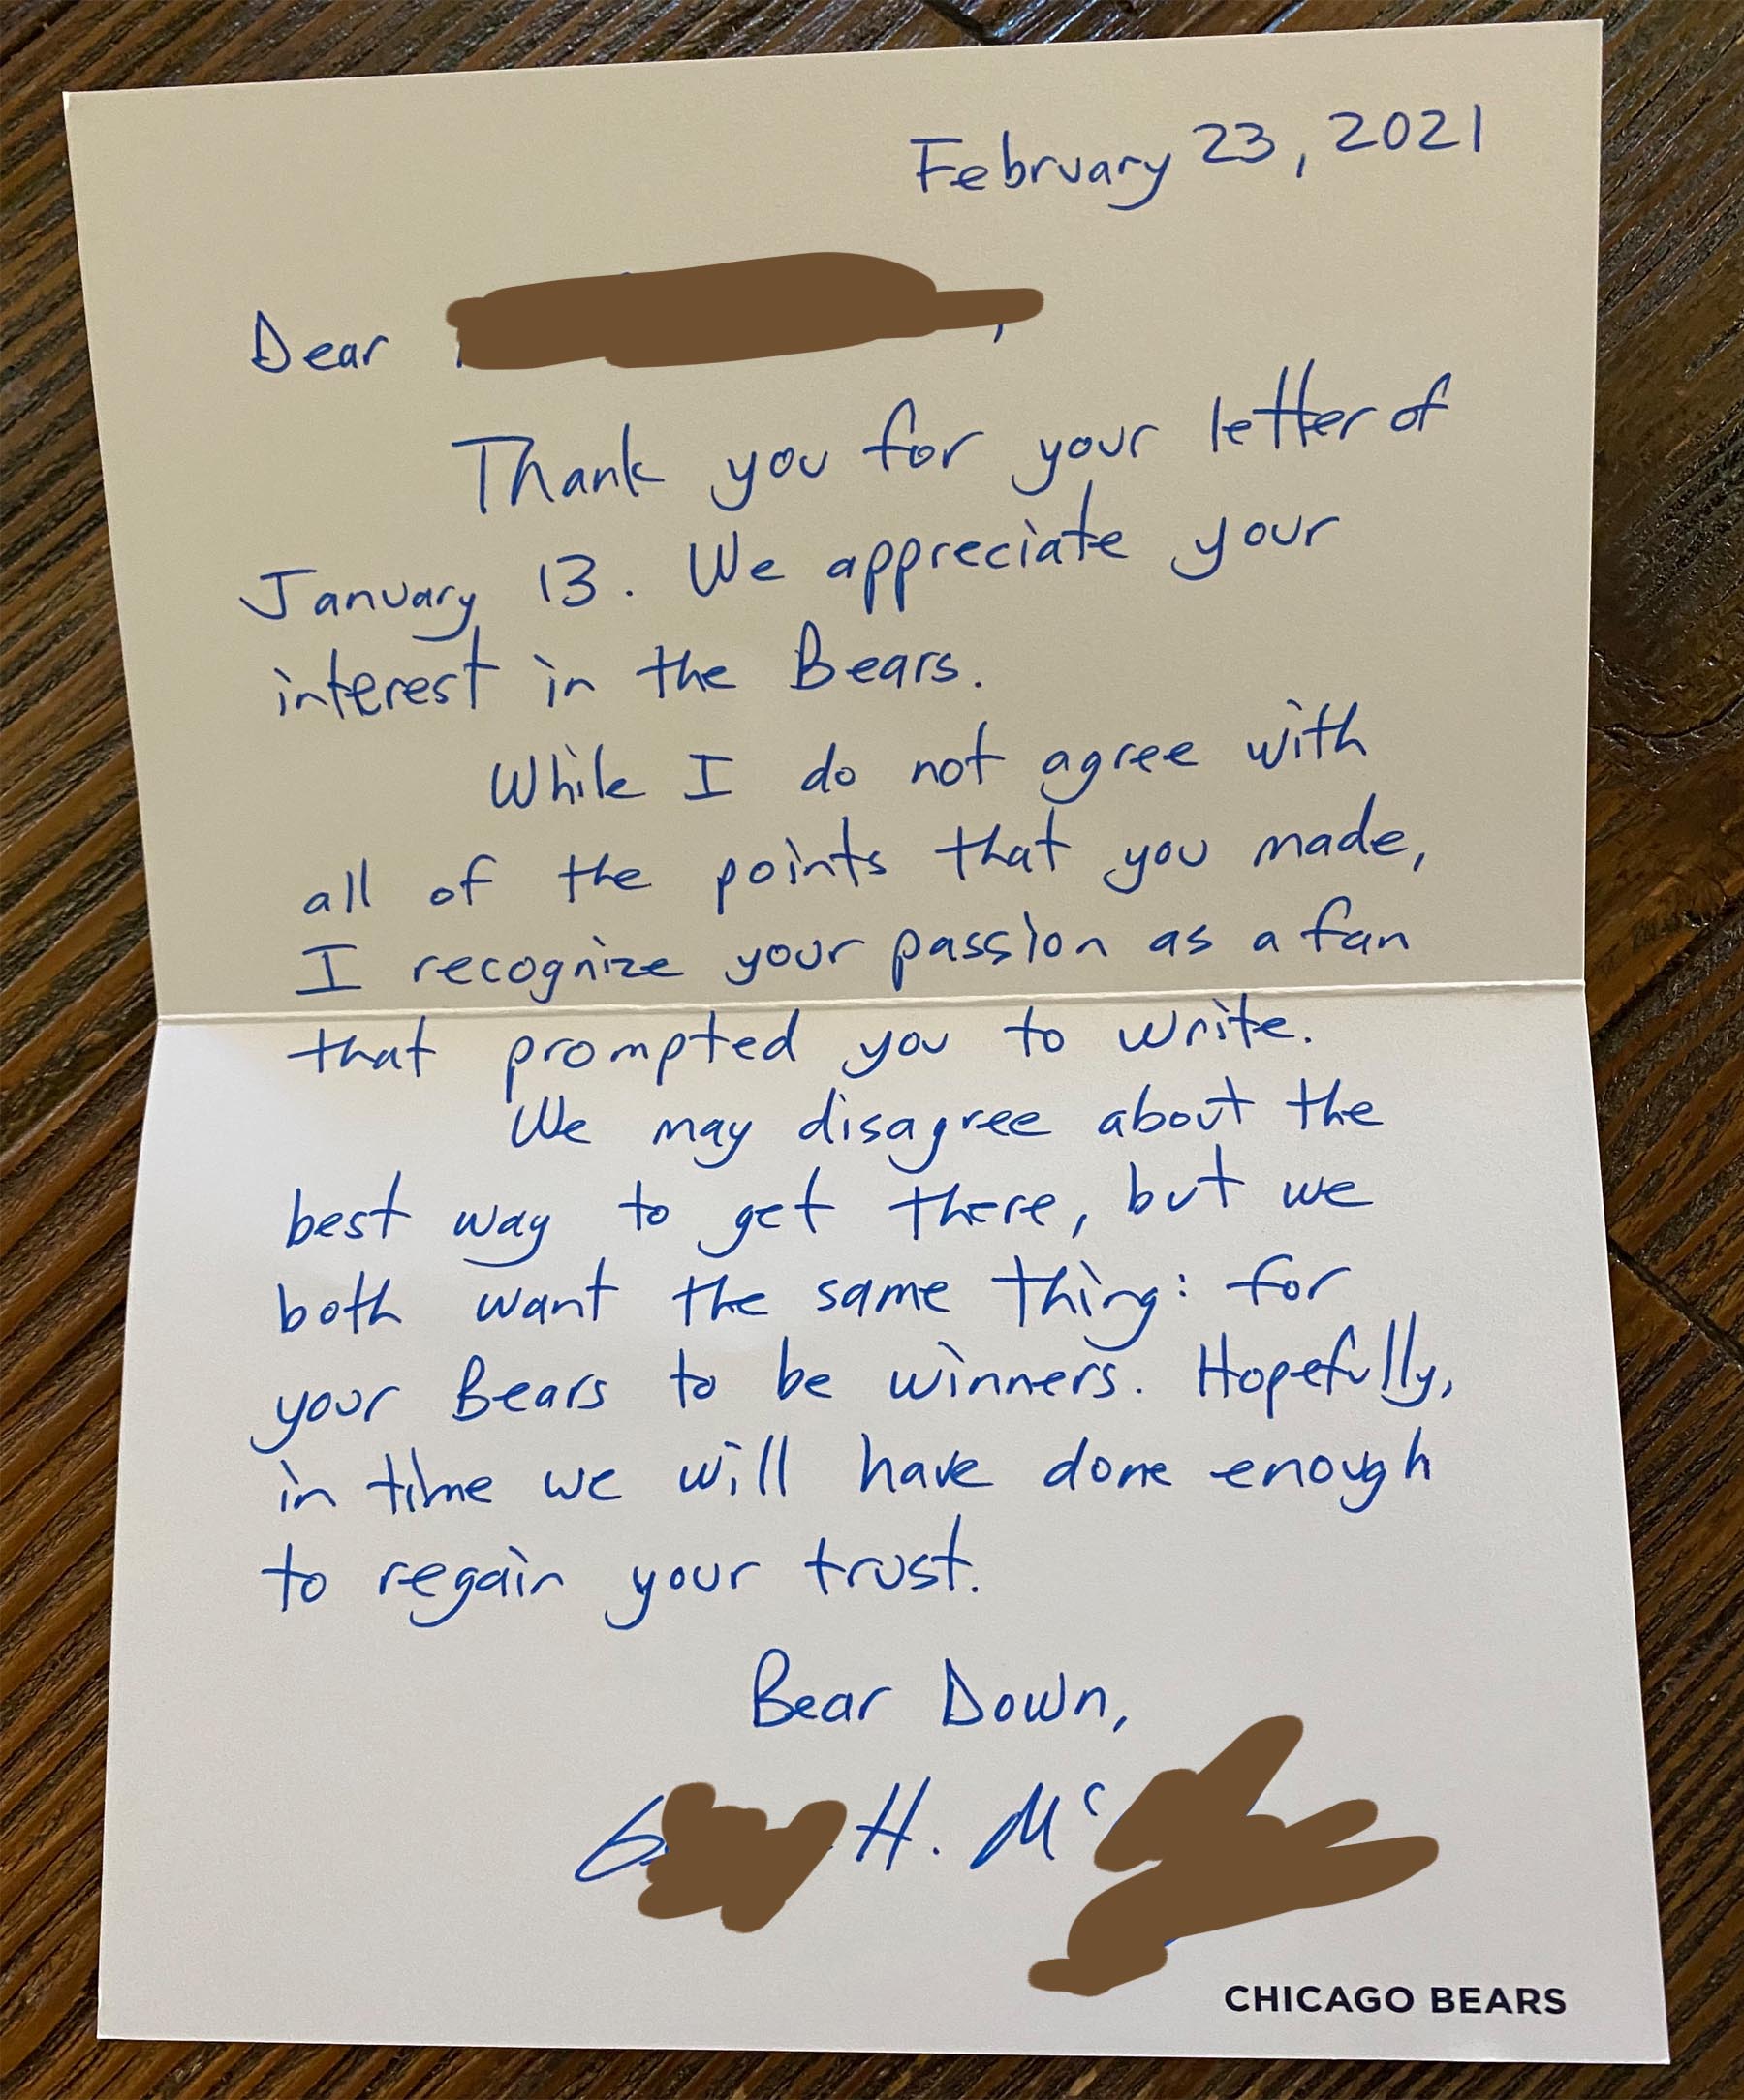 February 23, 2021
Dear ,
Thank you for your letter of
January 13. We appreciate your
interest in the Bears.
While I do not agree with
all of the points that you made,
I recognize your passion as a fan
that prompted you to write.
We may disagree about the
best way to get there, but we
both want the same thing: for
your Bears to be winners. Hopefully,
in time we will have done enough
to regain your trust.
Bear Down,
H. Mc
CHICAGO BEARS